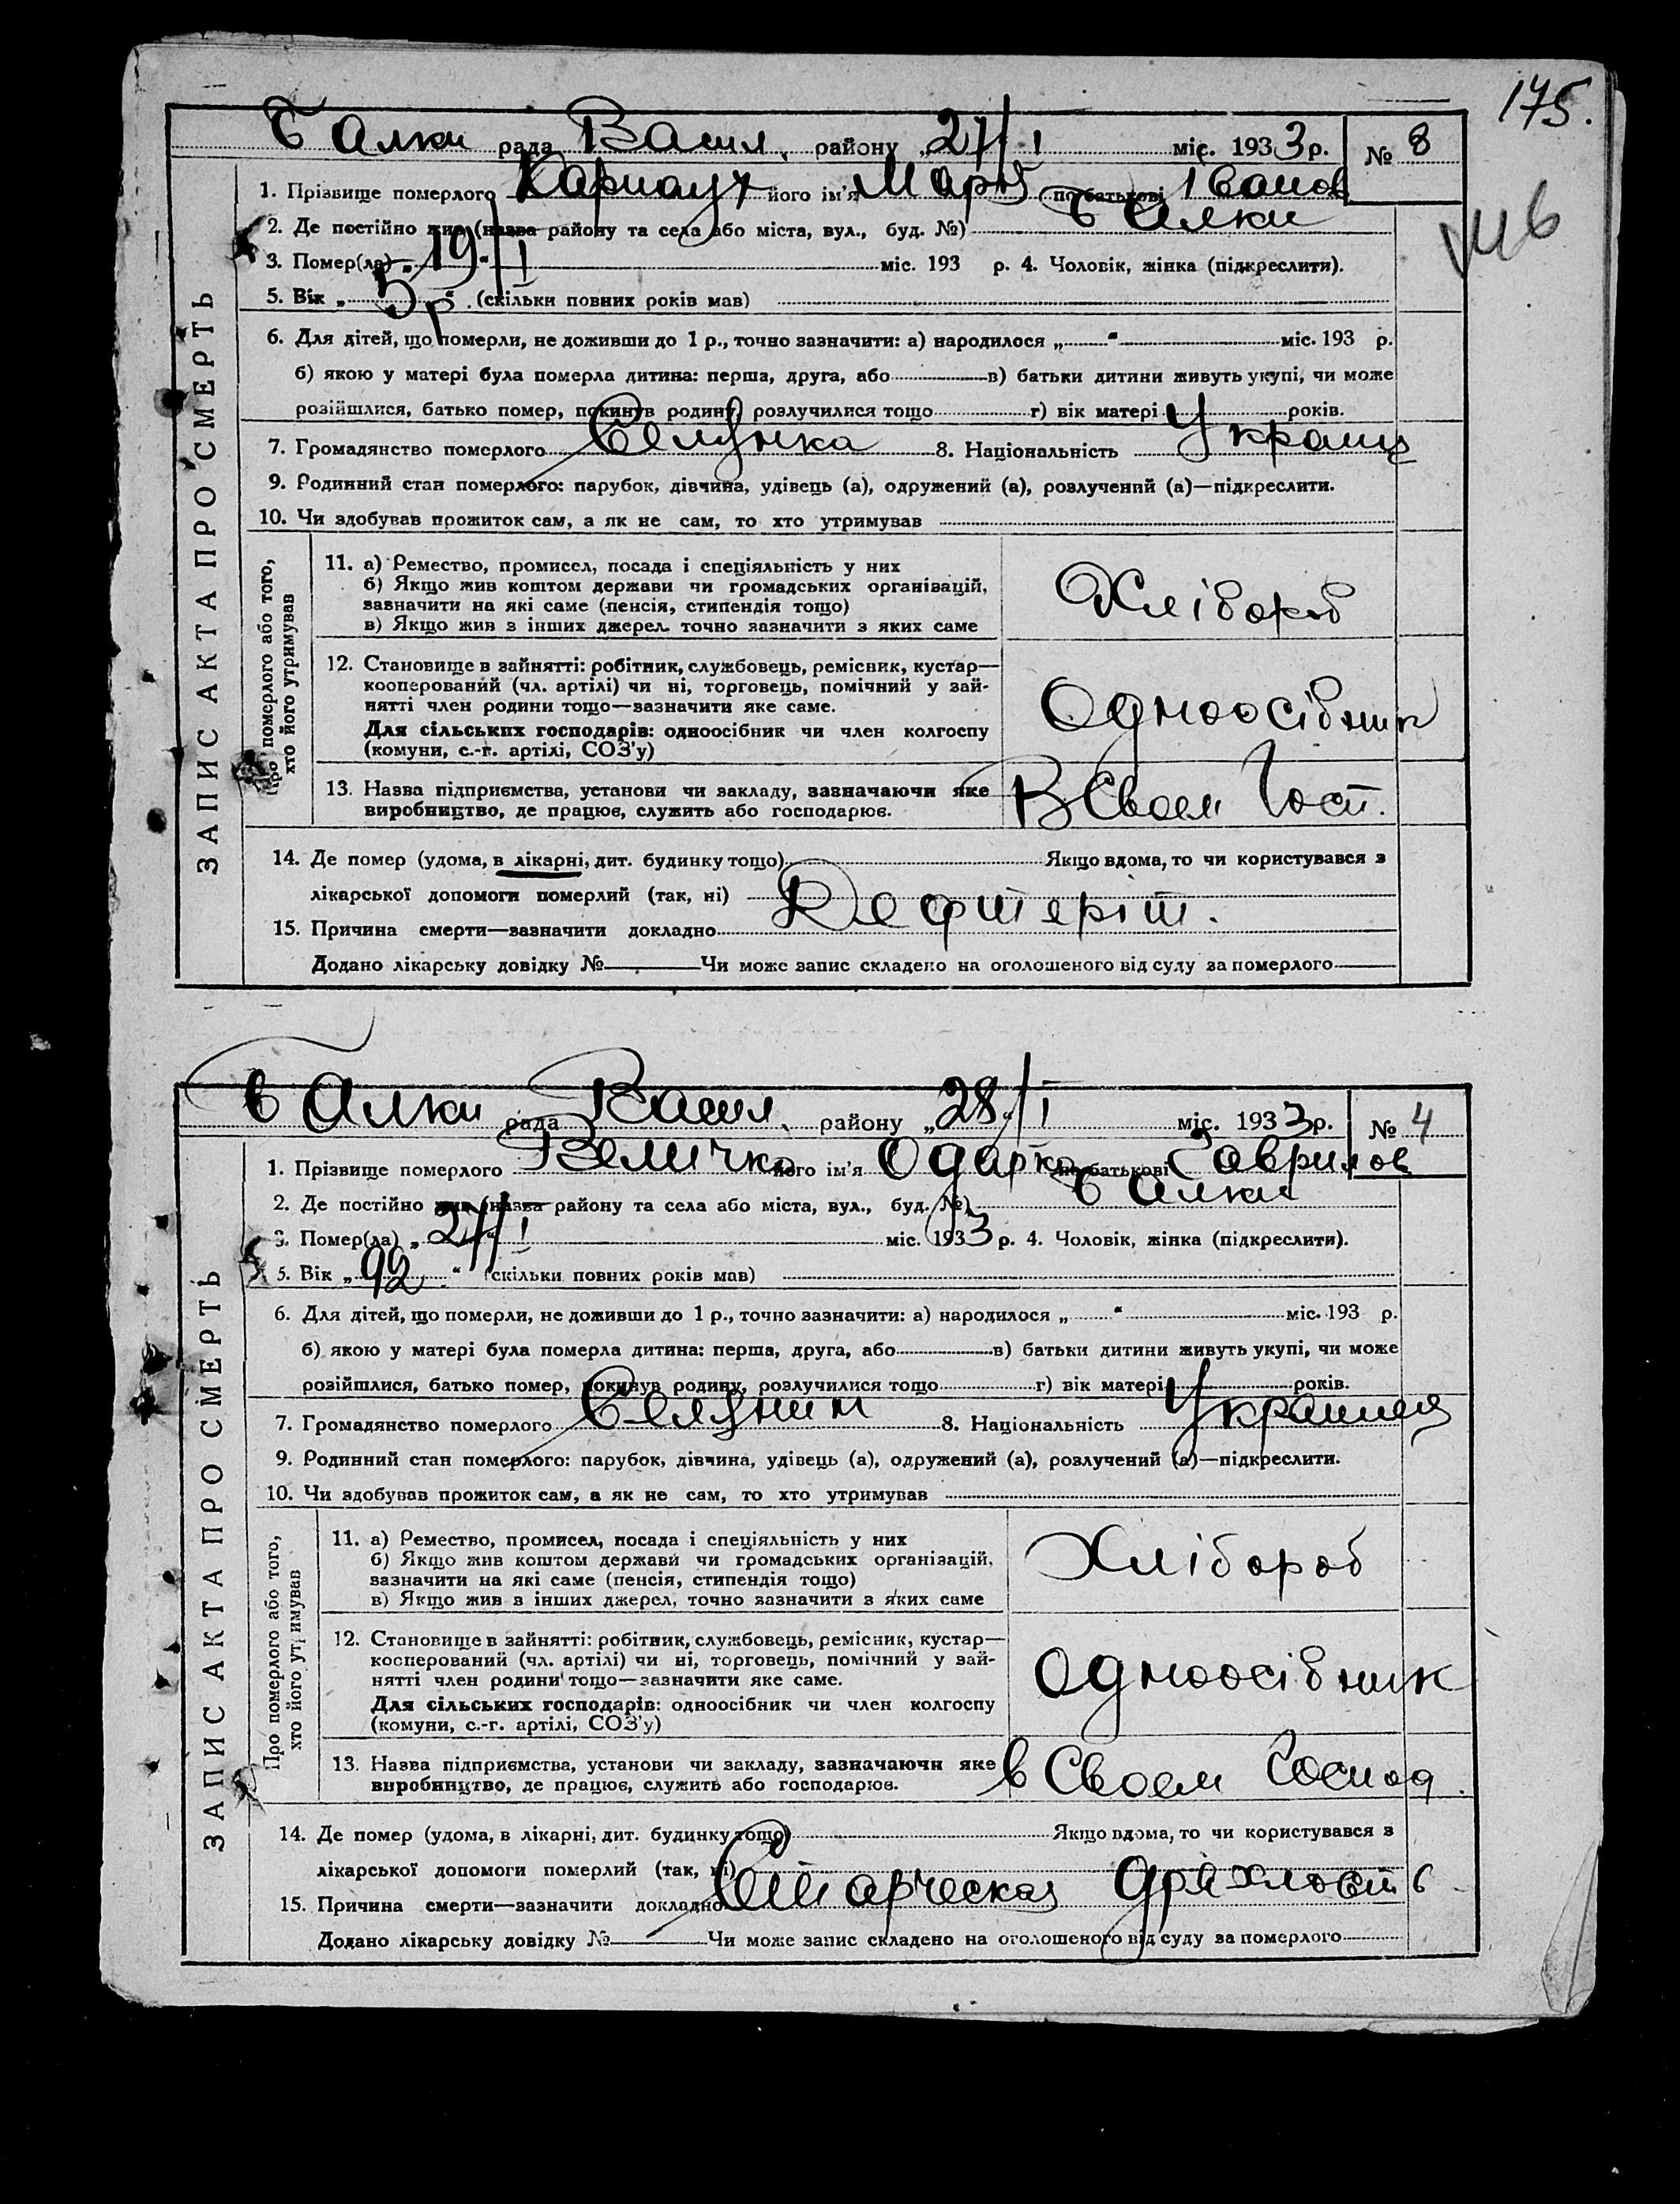 175.
Балки рада Васил. району „27/I міс. 1933 р. № 8
1. Прізвище померлого Карнаух його ім'я Марія по батькові Іванов
2. Де постійно жив (назва району та села або міста, вул., буд. №) Балки
3. Помер(ла) „19/I міс. 193 р. 4. Чоловік, жінка (підкреслити).
5. Вік „5 р“. (скільки повних років мав)
6. Для дітей, що померли, не доживши до 1 р., точно зазначити: а) народилося „ “ міс. 193 р.
б) якою у матері була померла дитина: перша, друга, або в) батьки дитини живуть укупі, чи може
розійшлися, батько помер, покинув родину, розлучилися тощо г) вік матері років.
7. Громадянство померлого Селянка 8. Національність Украинц
9. Родинний стан померлого: парубок, дівчина, удівець (а), одружений (а), розлучений (а)—підкреслити.
10. Чи здобував прожиток сам, а як не сам, то хто утримував
ЗАПИС АКТА ПРО СМЕРТЬ
Про померлого або того,
хто його утримував
11. а) Ремество, промисел, посада і спеціяльність у них
б) Якщо жив коштом держави чи громадських організацій,
зазначити на які саме (пенсія, стипендія тощо)
в) Якщо жив з інших джерел точно зазначити з яких саме
Хлібороб
12. Становище в зайнятті: робітник, службовець, ремісник, кустар—
кооперований (чл. артілі) чи ні, торговець, помічний у зай-
нятті член родини тощо—зазначити яке саме.
Для сільських господарів: одноосібник чи член колгоспу
(комуни, с.-г. артілі, СОЗ'у)
Одноосібник
13. Назва підприємства, установи чи закладу, зазначаючи яке
виробництво, де працює, служить або господарює.
В Своем Госп.
14. Де помер (удома, в лікарні, дит. будинку тощо) Якщо вдома, то чи користувався з
лікарської допомоги померлий (так, ні)
15. Причина смерти—зазначити докладно Дефтеріт.
Додано лікарську довідку № Чи може запис складено на оголошеного від суду за померлого
Балки рада Васил. району „28/I міс. 1933 р. № 4
1. Прізвище померлого Величко його ім'я Одарка по батькові Гаврилов
2. Де постійно жив (назва району та села або міста, вул., буд. №) Балки
3. Помер(ла) „27/I міс. 1933 р. 4. Чоловік, жінка (підкреслити).
5. Вік „92“ (скільки повних років мав)
6. Для дітей, що померли, не доживши до 1 р., точно зазначити: а) народилося „ “ міс. 193 р.
б) якою у матері була померла дитина: перша, друга, або в) батьки дитини живуть укупі, чи може
розійшлися, батько помер, покинув родину, розлучилися тощо г) вік матері років.
7. Громадянство померлого Селянин 8. Національність
9. Родинний стан померлого: парубок, дівчина, удівець (а), одружений (а), розлучений (а)—підкреслити.
10. Чи здобував прожиток сам, а як не сам, то хто утримував
ЗАПИС АКТА ПРО СМЕРТЬ
Про померлого або того,
хто його утримував
11. а) Ремество, промисел, посада і спеціяльність у них
б) Якщо жив коштом держави чи громадських організацій,
зазначити на які саме (пенсія, стипендія тощо)
в) Якщо жив з інших джерел, точно зазначити з яких саме
Хлібороб
12. Становище в зайнятті: робітник, службовець, ремісник, кустар—
косперований (чл. артілі) чи ні, торговець, помічний у зай-
нятті член родини тощо—зазначити яке саме.
Для сільських господарів: одноосібник чи член колгоспу
(комуни, с.-г. артілі, СОЗ'у)
Одноосібник
13. Назва підприємства, установи чи закладу, зазначаючи яке
виробництво, де працює, служить або господарює.
в Своем Господ.
14. Де помер (удома, в лікарні, дит. будинку тощо) Якщо вдома, то чи користувався з
лікарської допомоги померлий (так, ні)
15. Причина смерти—зазначити докладно Старческая дряхлость
Додано лікарську довідку № Чи може запис складено на оголошеного від суду за померлого